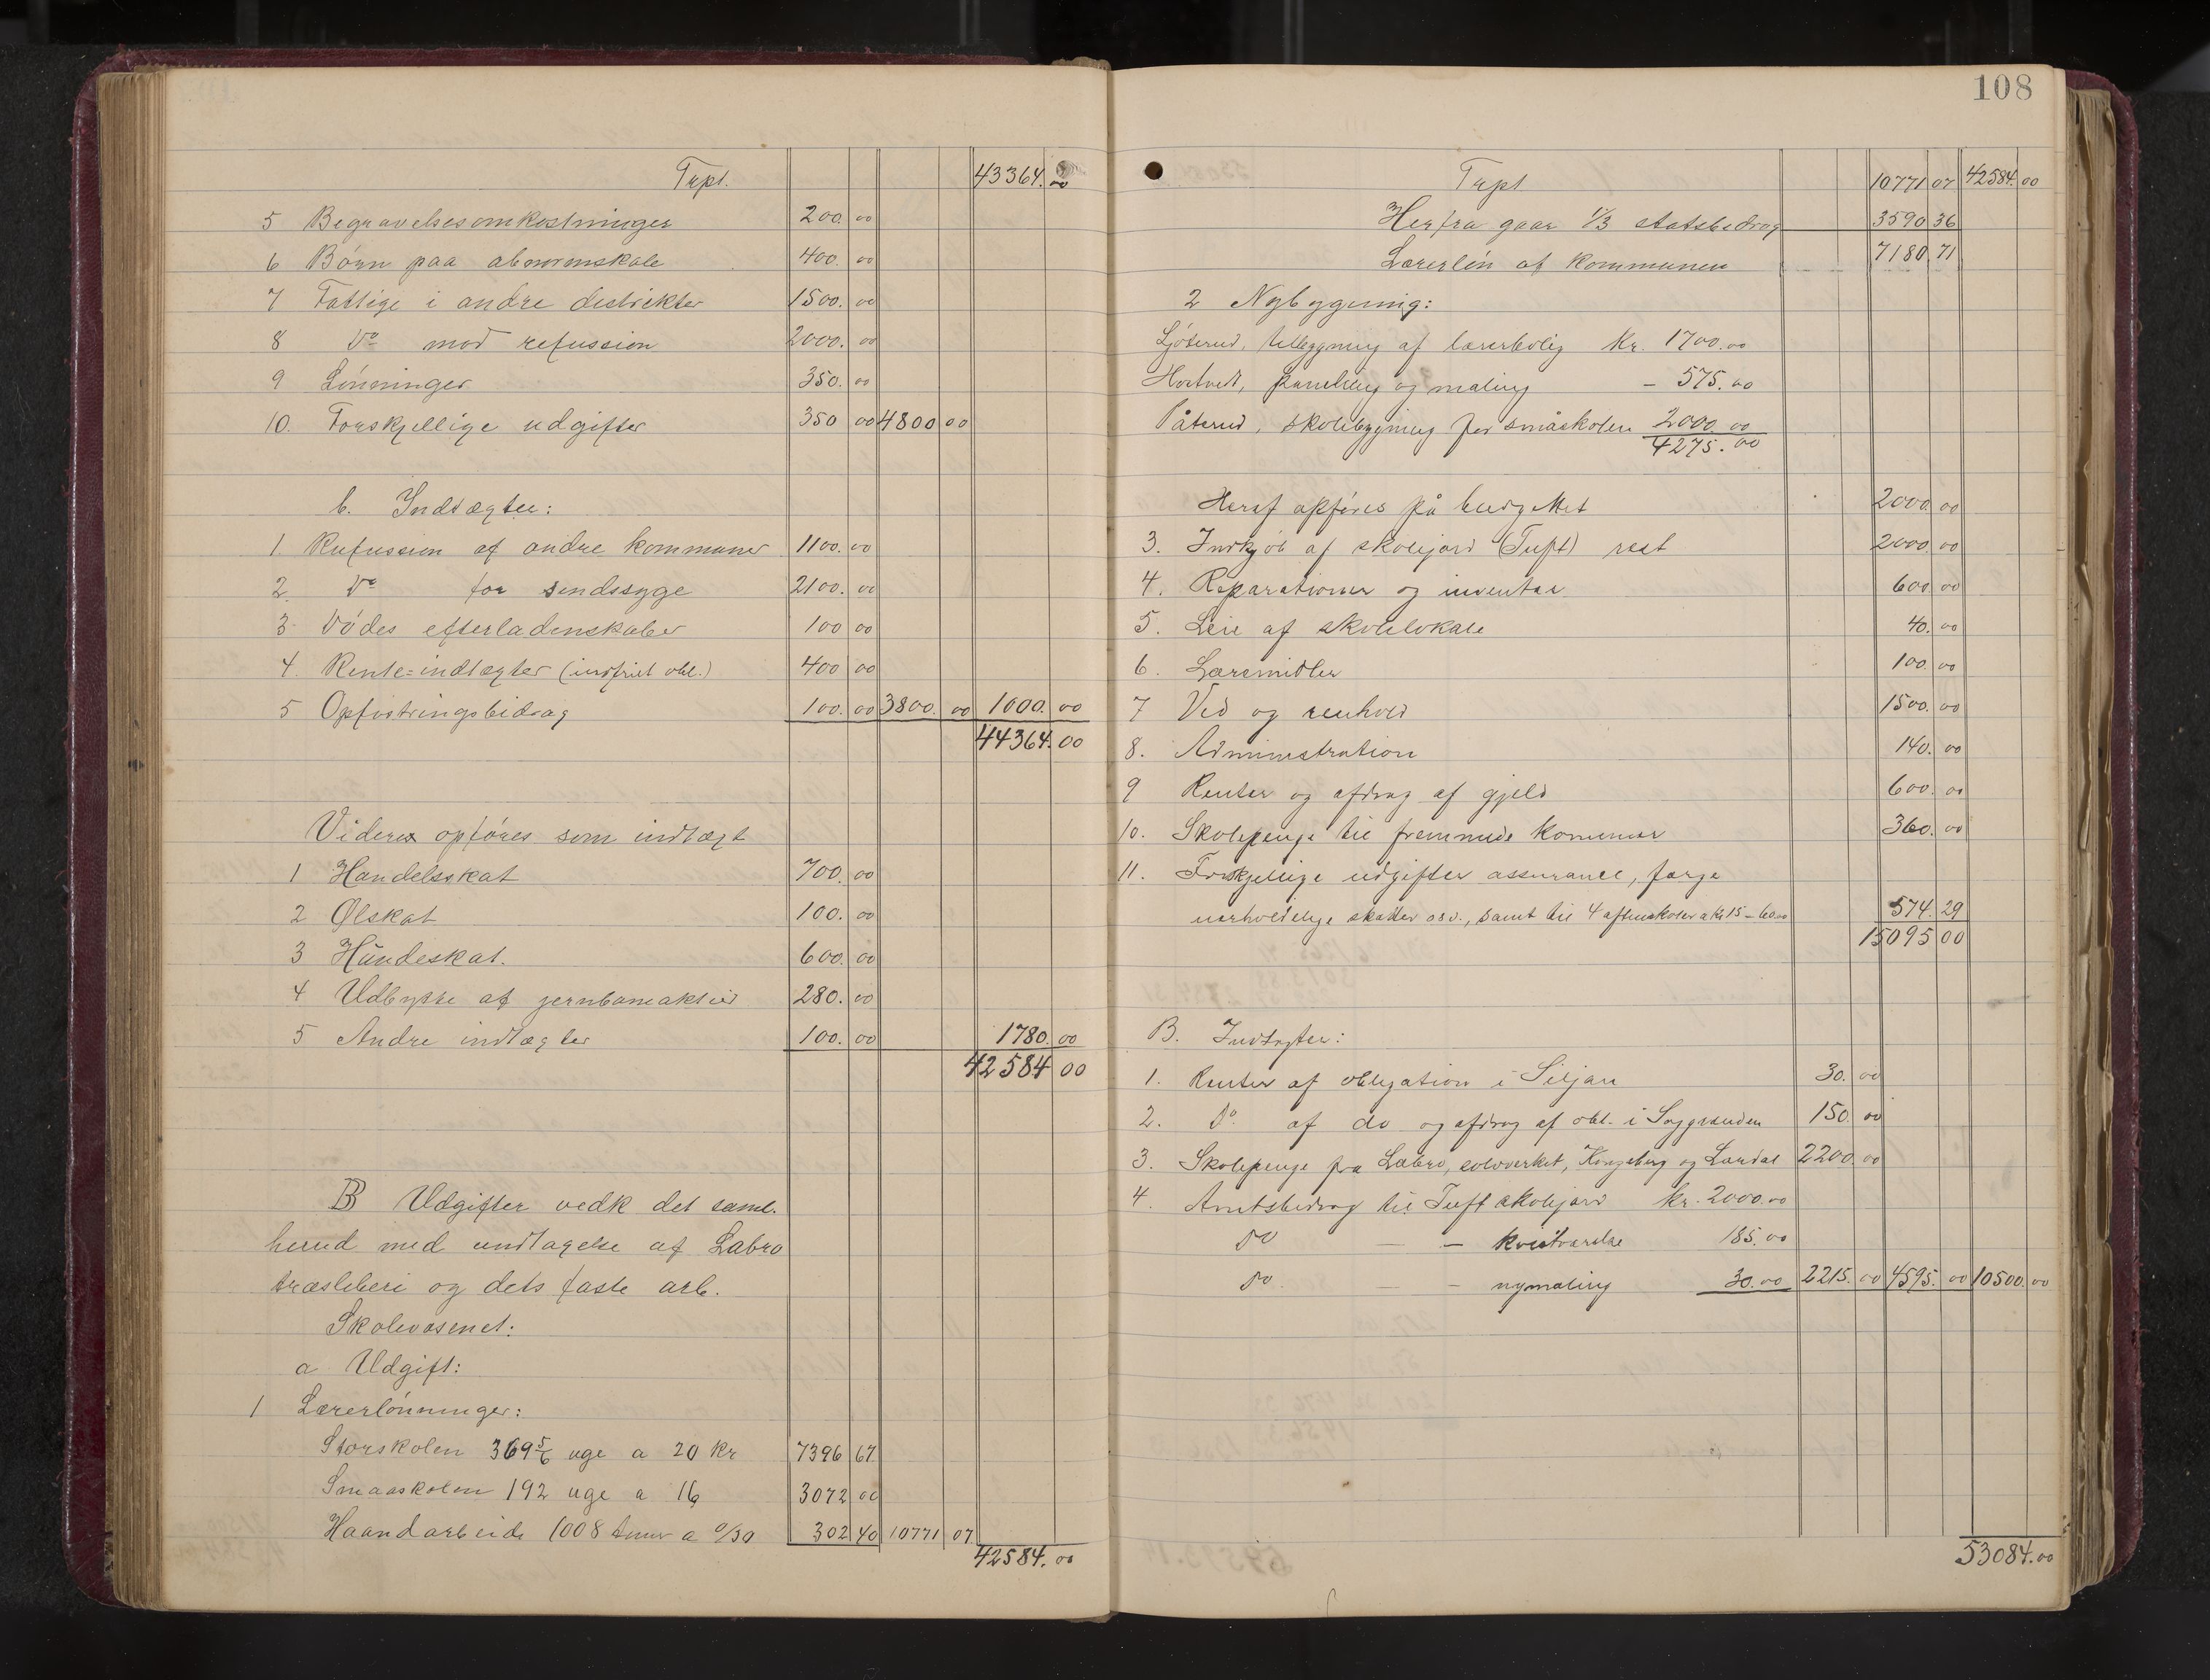 Trpt. 43364.00
5 Begravelsesomkostninger 200.00
6 Børn paa abnormskole 400.00
7 Fattige i andre distrikter 1500.00
8 Do mod refussion 2000.00
9 Lønninger 350.00
10. Forskjellige udgifter 350 00 4800 00
b. Indtægter:
1. Refussion af andre kommuner 1100.00
2. Do for sindssyge 2100.00
3 Dødes efterladenskaber 100 00
4. Rente=indtægter (indfriet obl.) 400 00
5 Opfostringsbidrag 100.00 3800.00 1000.00
44364.00
Videre opføres som indtægt
1 Handelsskat 700.00
2 Ølskat 100.00
3 Hundeskat. 600.00
4 Udbytte af jernbaneaktier 280.00
5 Andre indtægter 100.00 1780.00
42584 00
B Udgifter vedk det saml.
herred med undtagelse af Labro
træsliberi og dets faste arb.
Skolevæsenet:
a Udgift:
1 Lærerlønninger:
Storskolen 369 5/6 uge a 20 kr 7396 67
Smaaskolen 192 uge a 16 3072 00
Haandarbeide 1008 timer a 0/30 302 40 10771 07
42584.00
108
Trpt 10771 07 42584.00
Herfra gaar 1/3 statsbidrag 3590 36
Lærerløn af kommunen 7180 71
2 Nybygning:
Ljøterud, tilbygning af lærerbolig Kr. 1700.00
Hostvedt, paneling og maling – 575.00
Påterud, skolebygning for småskolen 2000.00
4275.00
Heraf opføres på budgettet 2000.00
3. Indkjøb af skolejord (Tuft) rest 2000.00
4. Reparationer og inventar 600.00
5. Leie af skolelokale 40.00
6. Læremidler 100.00
7 Ved og renhold 1500.00
8. Administration 140.00
9 Renter og afdrag af gjeld 600.00
10. Skolepenge til fremmede kommuner 360.00
11. Forskjellige udgifter assurance, farge
uerholdelige skatter osv., samt til 4 aftenskoler a kr 15 – 60.00 574.29
15095 00
B. Indtægter:
1. Renter af obligation i Siljan 30.00
2. Do. af do og afdrag af obl. i Saggrenden 150 00
3. Skolepenge fra Labro, sølvverket, Kongsberg og Lardal 2200.00
4. Amtsbidrag til Tuft skolejord kr. 2000.00
Do – – kvistværelse 185.00
Do. – – nymaling 30.00 2215.00 4595.00 10500.00
53084.00